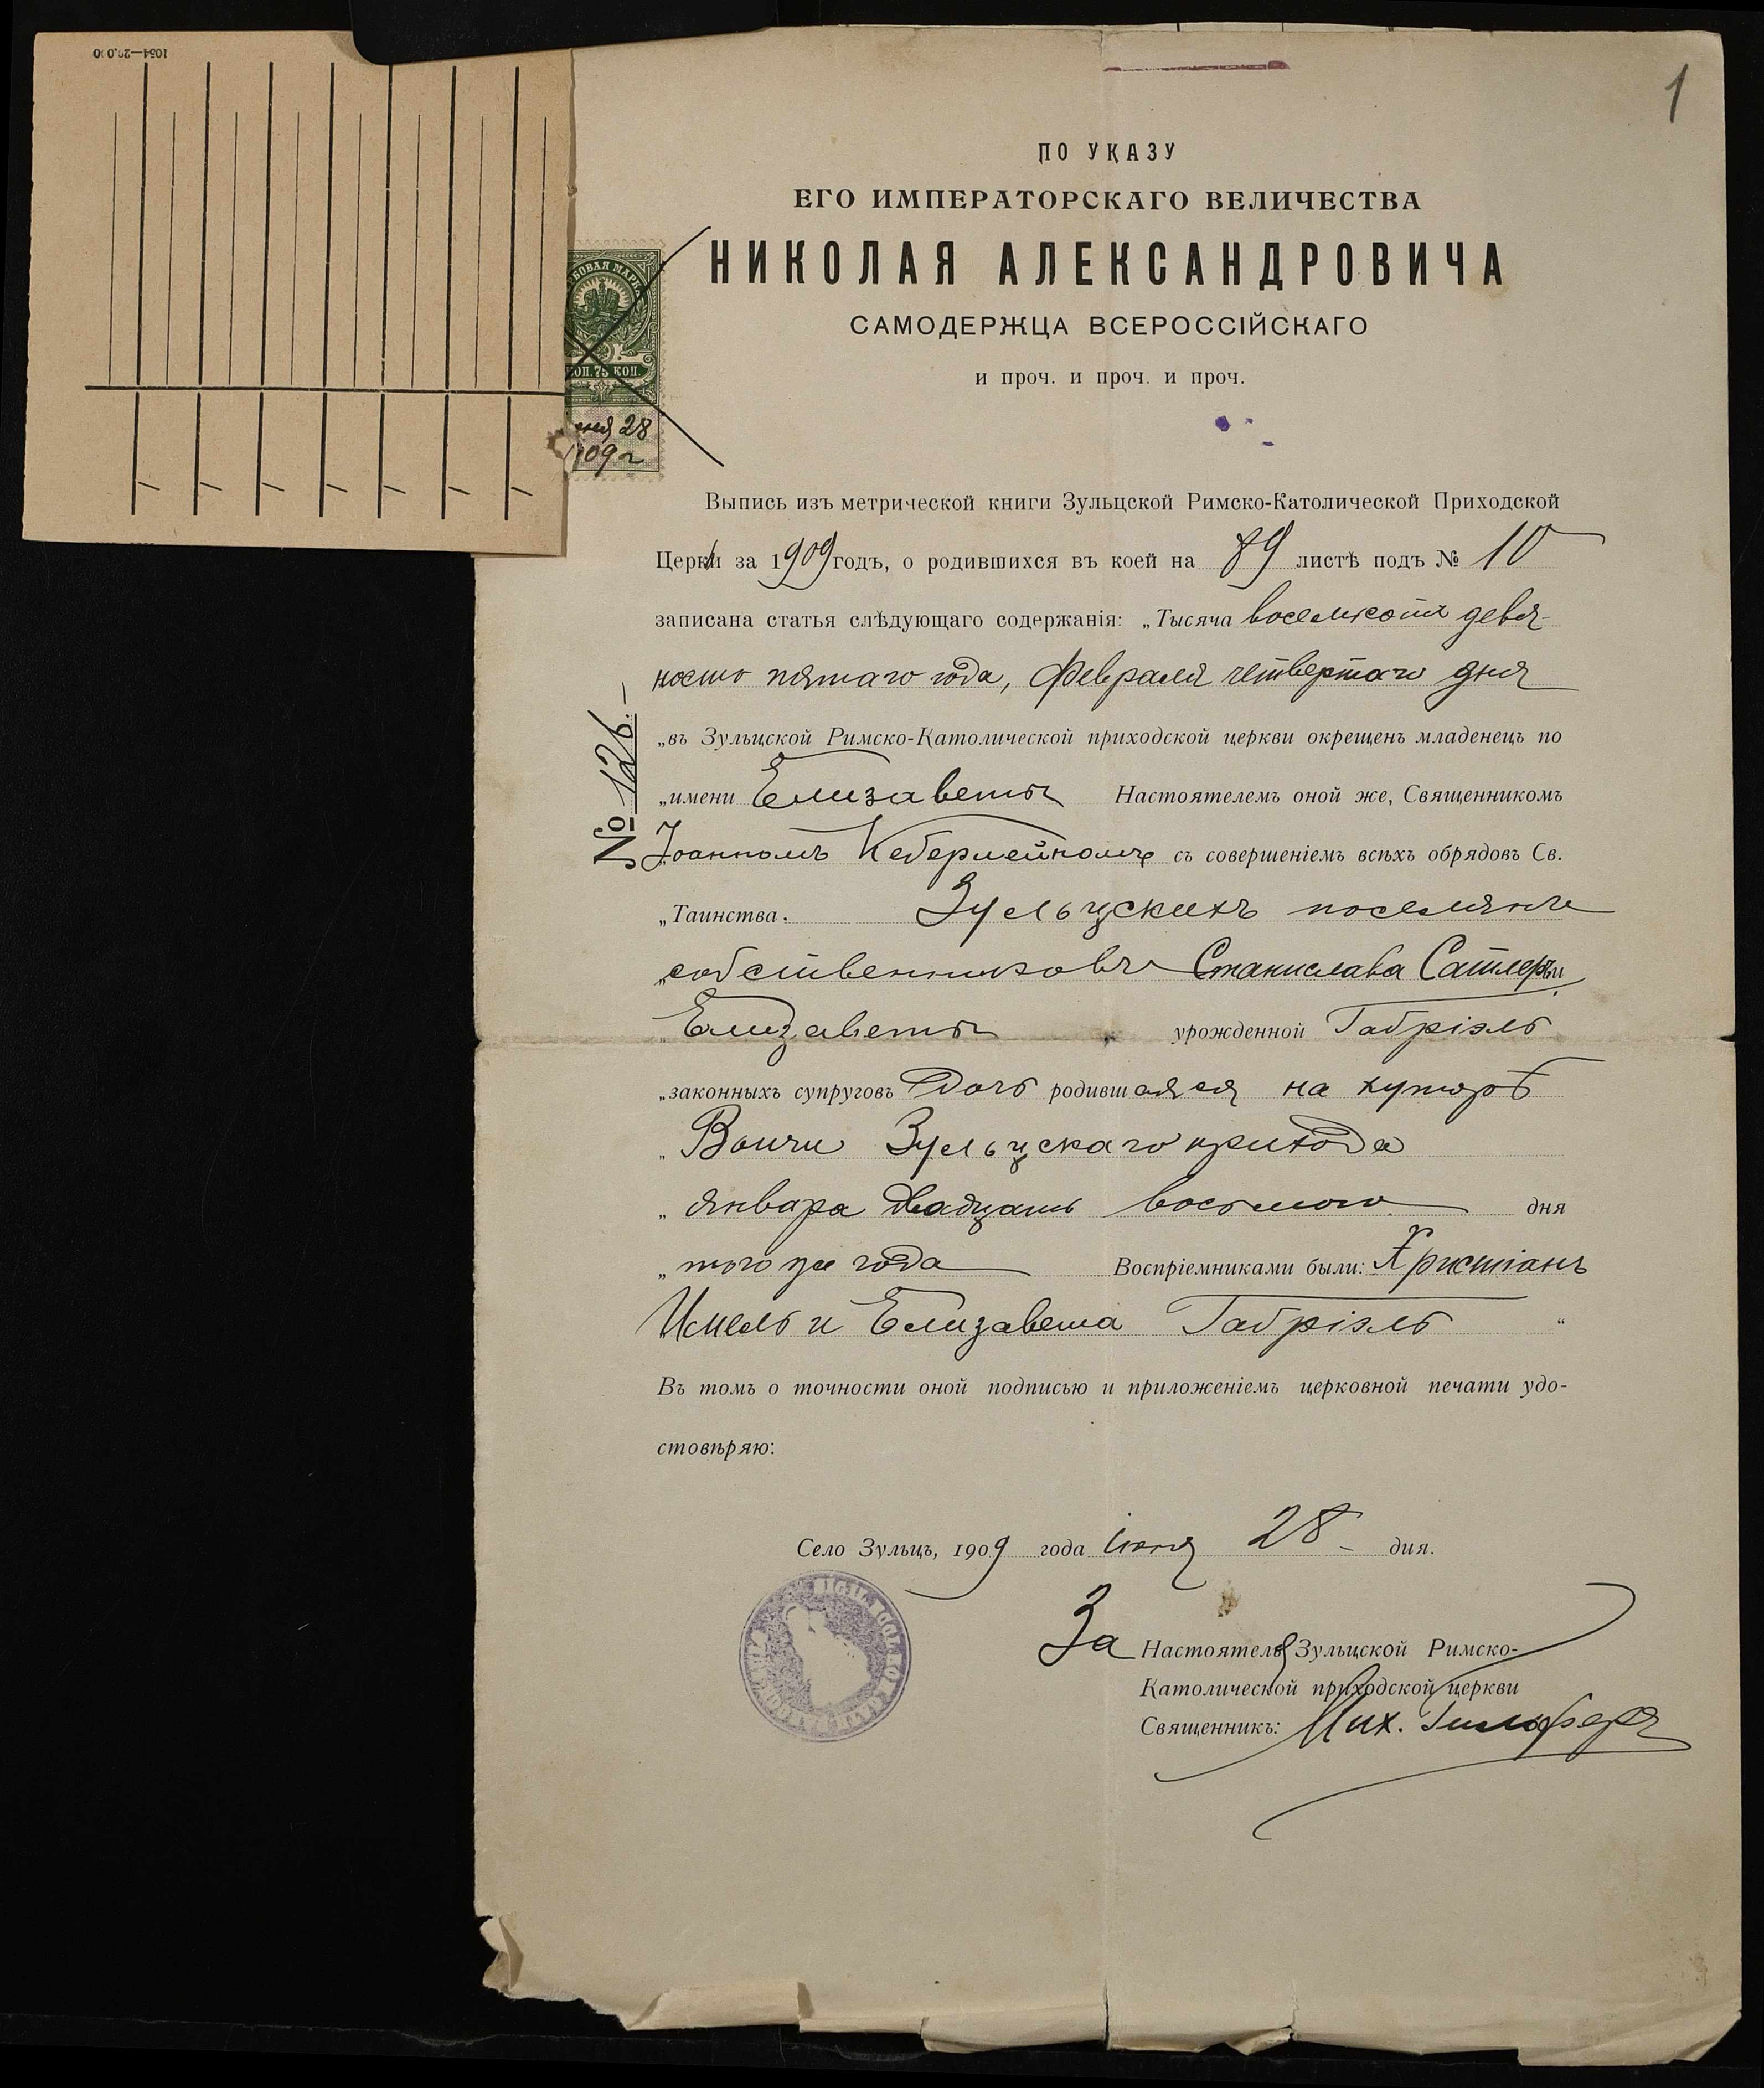 1054—20.000
1
ПО УКАЗУ
ЕГО ИМПЕРАТОРСКАГО ВЕЛИЧЕСТВА
НИКОЛАЯ АЛЕКСАНДРОВИЧА
САМОДЕРЖЦА ВСЕРОССІЙСКАГО
и проч. и проч. и проч.
БОВАЯ МАРК
КОП. 75 КОП.
28
1909 г
Выпись изъ метрической книги Зульцской Римско-Католической Приходской
Церкви за 1909 годъ, о родившихся въ коей на 89 листѣ подъ № 10
записана статья слѣдующаго содержанія: „Тысяча восемьсотъ девя-
носто пятаго года, Февраля четвертаго дня
„въ Зульцской Римско-Католической приходской церкви окрещенъ младенецъ по
„имени Елизаветы Настоятелемъ оной же, Священникомъ
Іоанномъ Кеберлейномъ съ совершеніемъ всѣхъ обрядовъ Св.
„Таинства. Зульцскихъ поселянъ
„собственниковъ Станислава Сатлеръ и
„Елизаветы урожденной Габріэль
„законныхъ супруговъ дочь родившаяся на хуторѣ
„Воичи Зульцскаго прихода
„Января двадцать восьмого дня
„того же года Воспріемниками были: Христіанъ
Имель и Елизавета Габріэль “
Въ томъ о точности оной подписью и приложеніемъ церковной печати удо-
стовѣряю:
№ 126.—
Село Зульцъ, 1909 года іюня 28 дня.
За Настоятеля Зульцской Римско-
Католической приходской церкви
Священникъ: Мих.